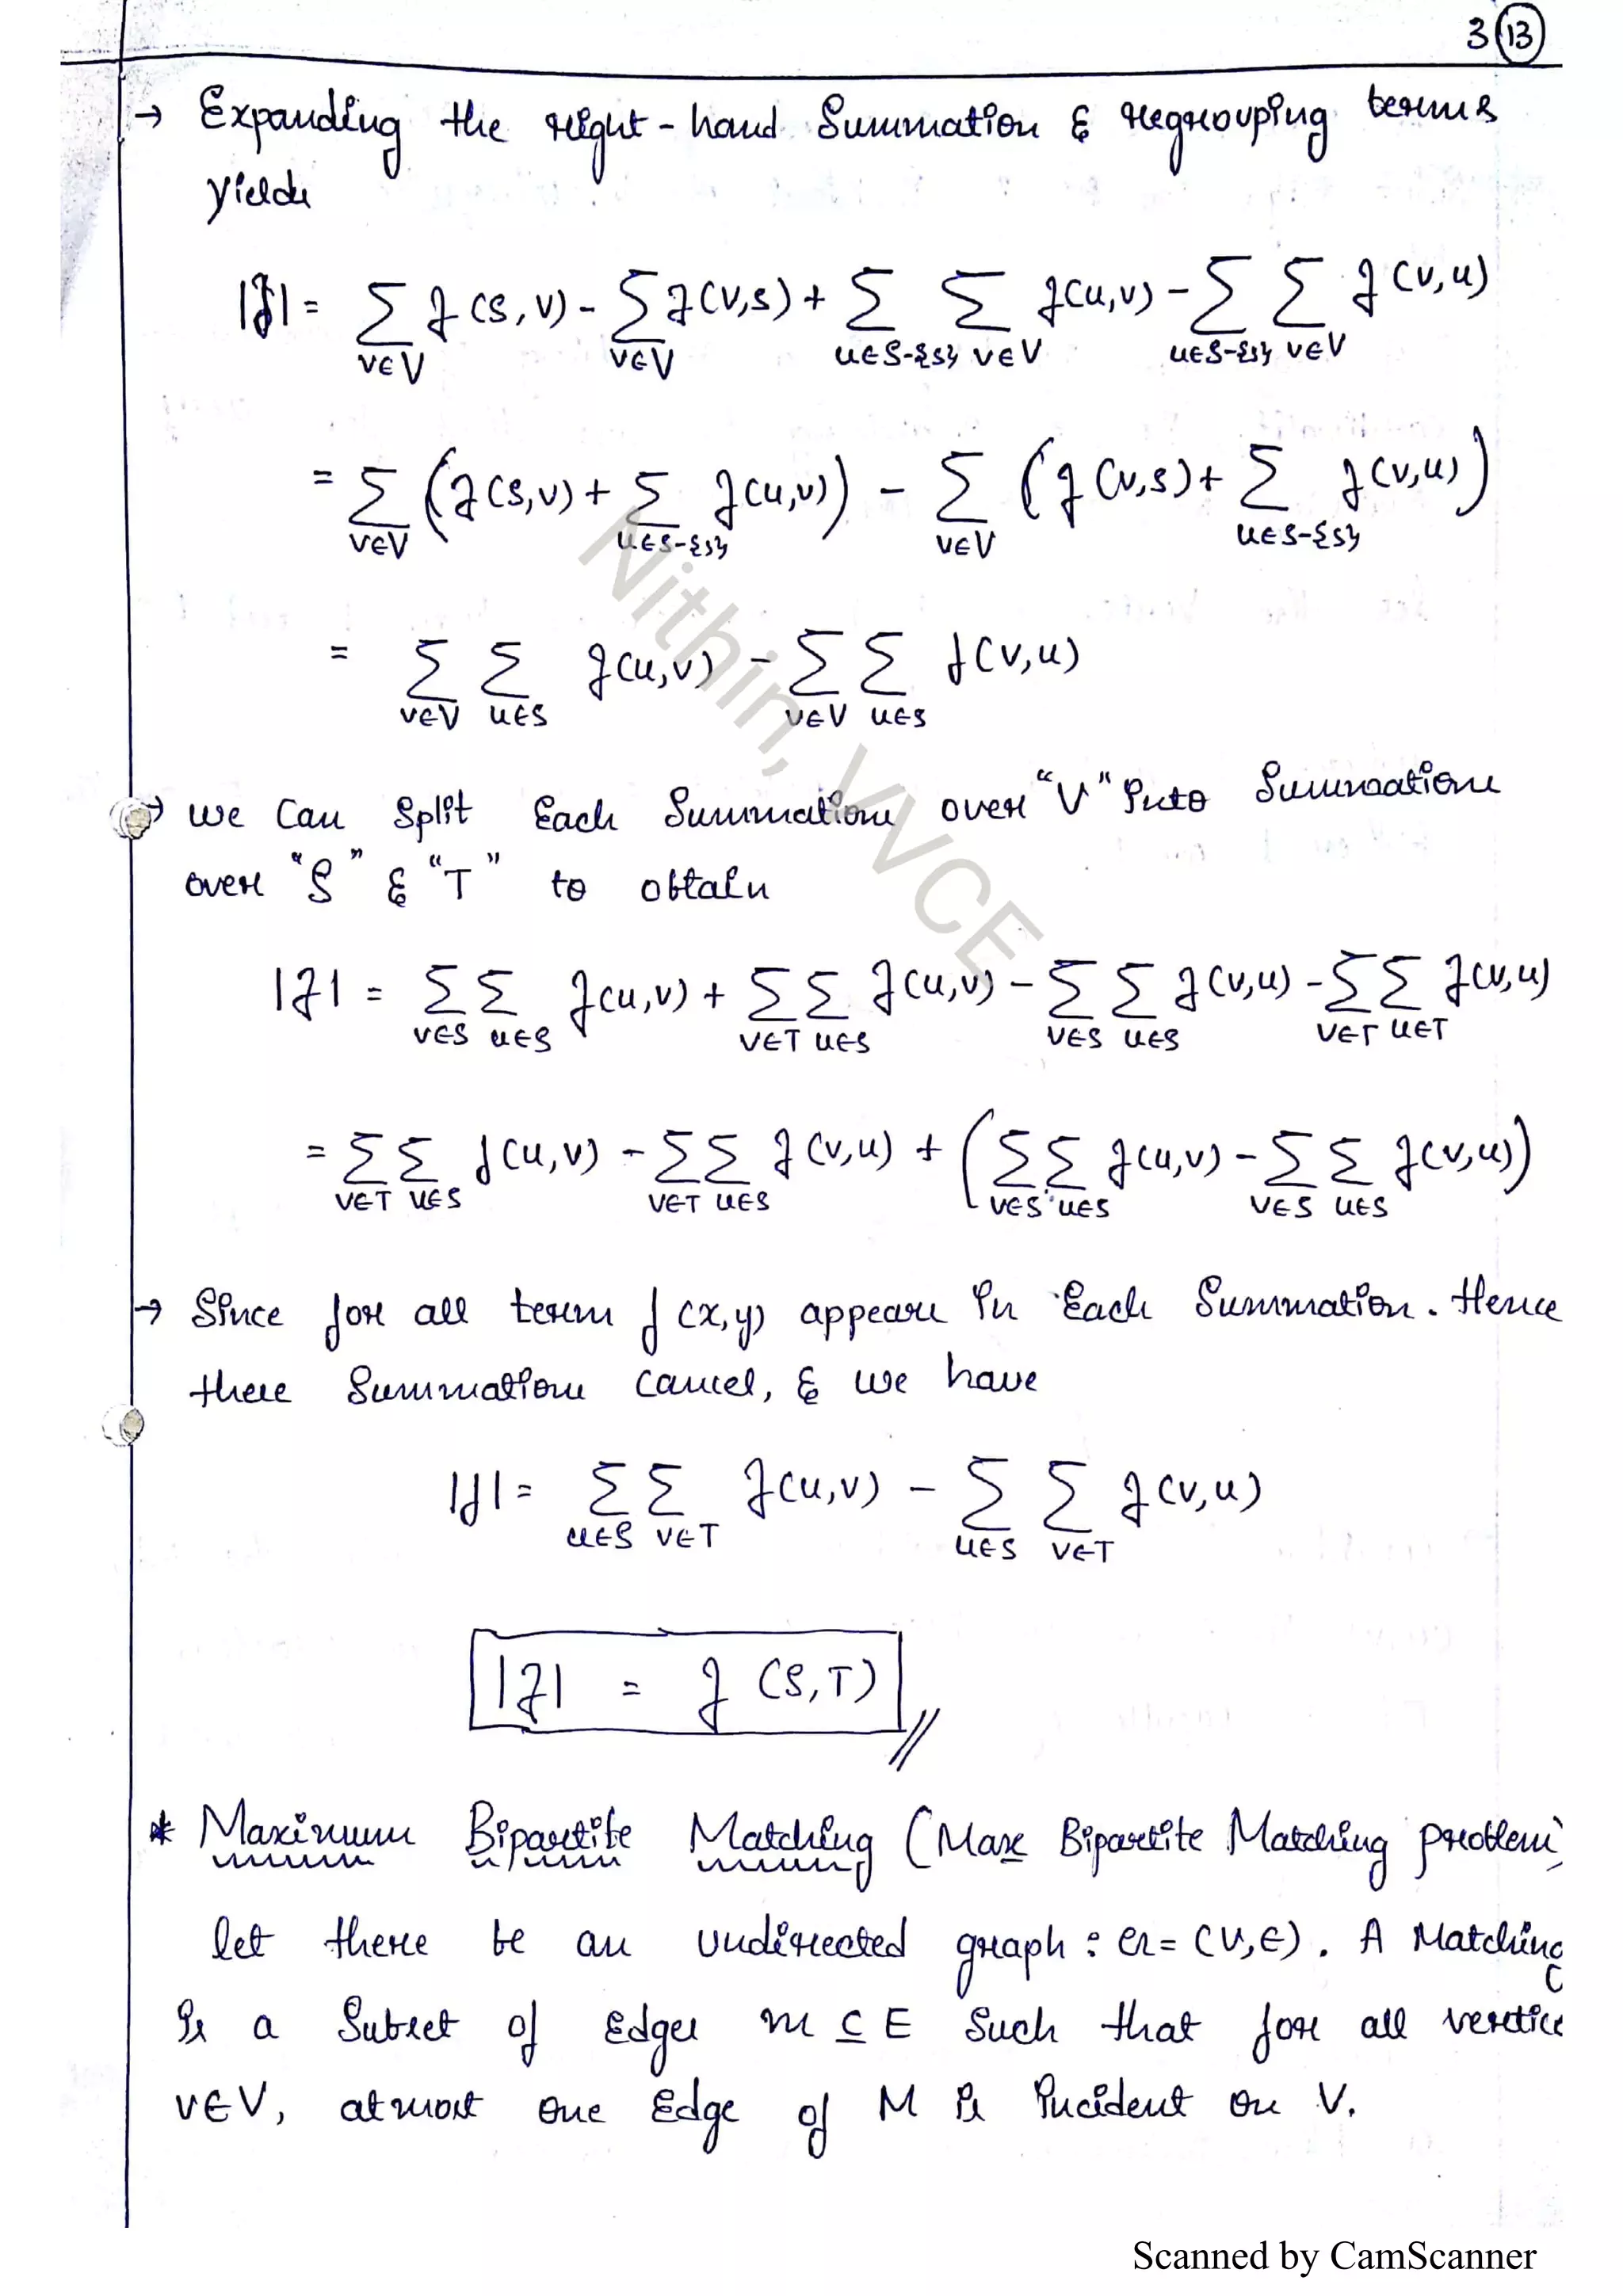 3 13
→ Expanding the right-hand Summation & regrouping terms
yields
|f| = ∑_{v∈V} f(s,v) - ∑_{v∈V} f(v,s) + ∑_{u∈S-{s}} ∑_{v∈V} f(u,v) - ∑_{u∈S-{s}} ∑_{v∈V} f(v,u)
= ∑_{v∈V} (f(s,v) + ∑_{u∈S-{s}} f(u,v)) - ∑_{v∈V} (f(v,s) + ∑_{u∈S-{s}} f(v,u))
= ∑_{v∈V} ∑_{u∈S} f(u,v) - ∑_{v∈V} ∑_{u∈S} f(v,u)
→ we can split Each Summations over "V" into Summations
over "S" & "T" to obtain
|f| = ∑_{v∈S} ∑_{u∈S} f(u,v) + ∑_{v∈T} ∑_{u∈S} f(u,v) - ∑_{v∈S} ∑_{u∈S} f(v,u) - ∑_{v∈T} ∑_{u∈T} f(v,u)
= ∑_{v∈T} ∑_{u∈S} f(u,v) - ∑_{v∈T} ∑_{u∈S} f(v,u) + (∑_{v∈S} ∑_{u∈S} f(u,v) - ∑_{v∈S} ∑_{u∈S} f(v,u))
→ Since for all term f(x,y) appears in Each Summation. Hence
these Summations cancel, & we have
|f| = ∑_{u∈S} ∑_{v∈T} f(u,v) - ∑_{u∈S} ∑_{v∈T} f(v,u)
|f| = f (S,T) //
* Maximum Bipartite Matching (Max Bipartite Matching problem)
let there be an undirected graph : G = (V,E). A Matching
is a Subset of Edges m ⊆ E Such that for all vertice
v∈V, atmost one Edge of M is incident on V.
Nithin, VVCE
Scanned by CamScanner